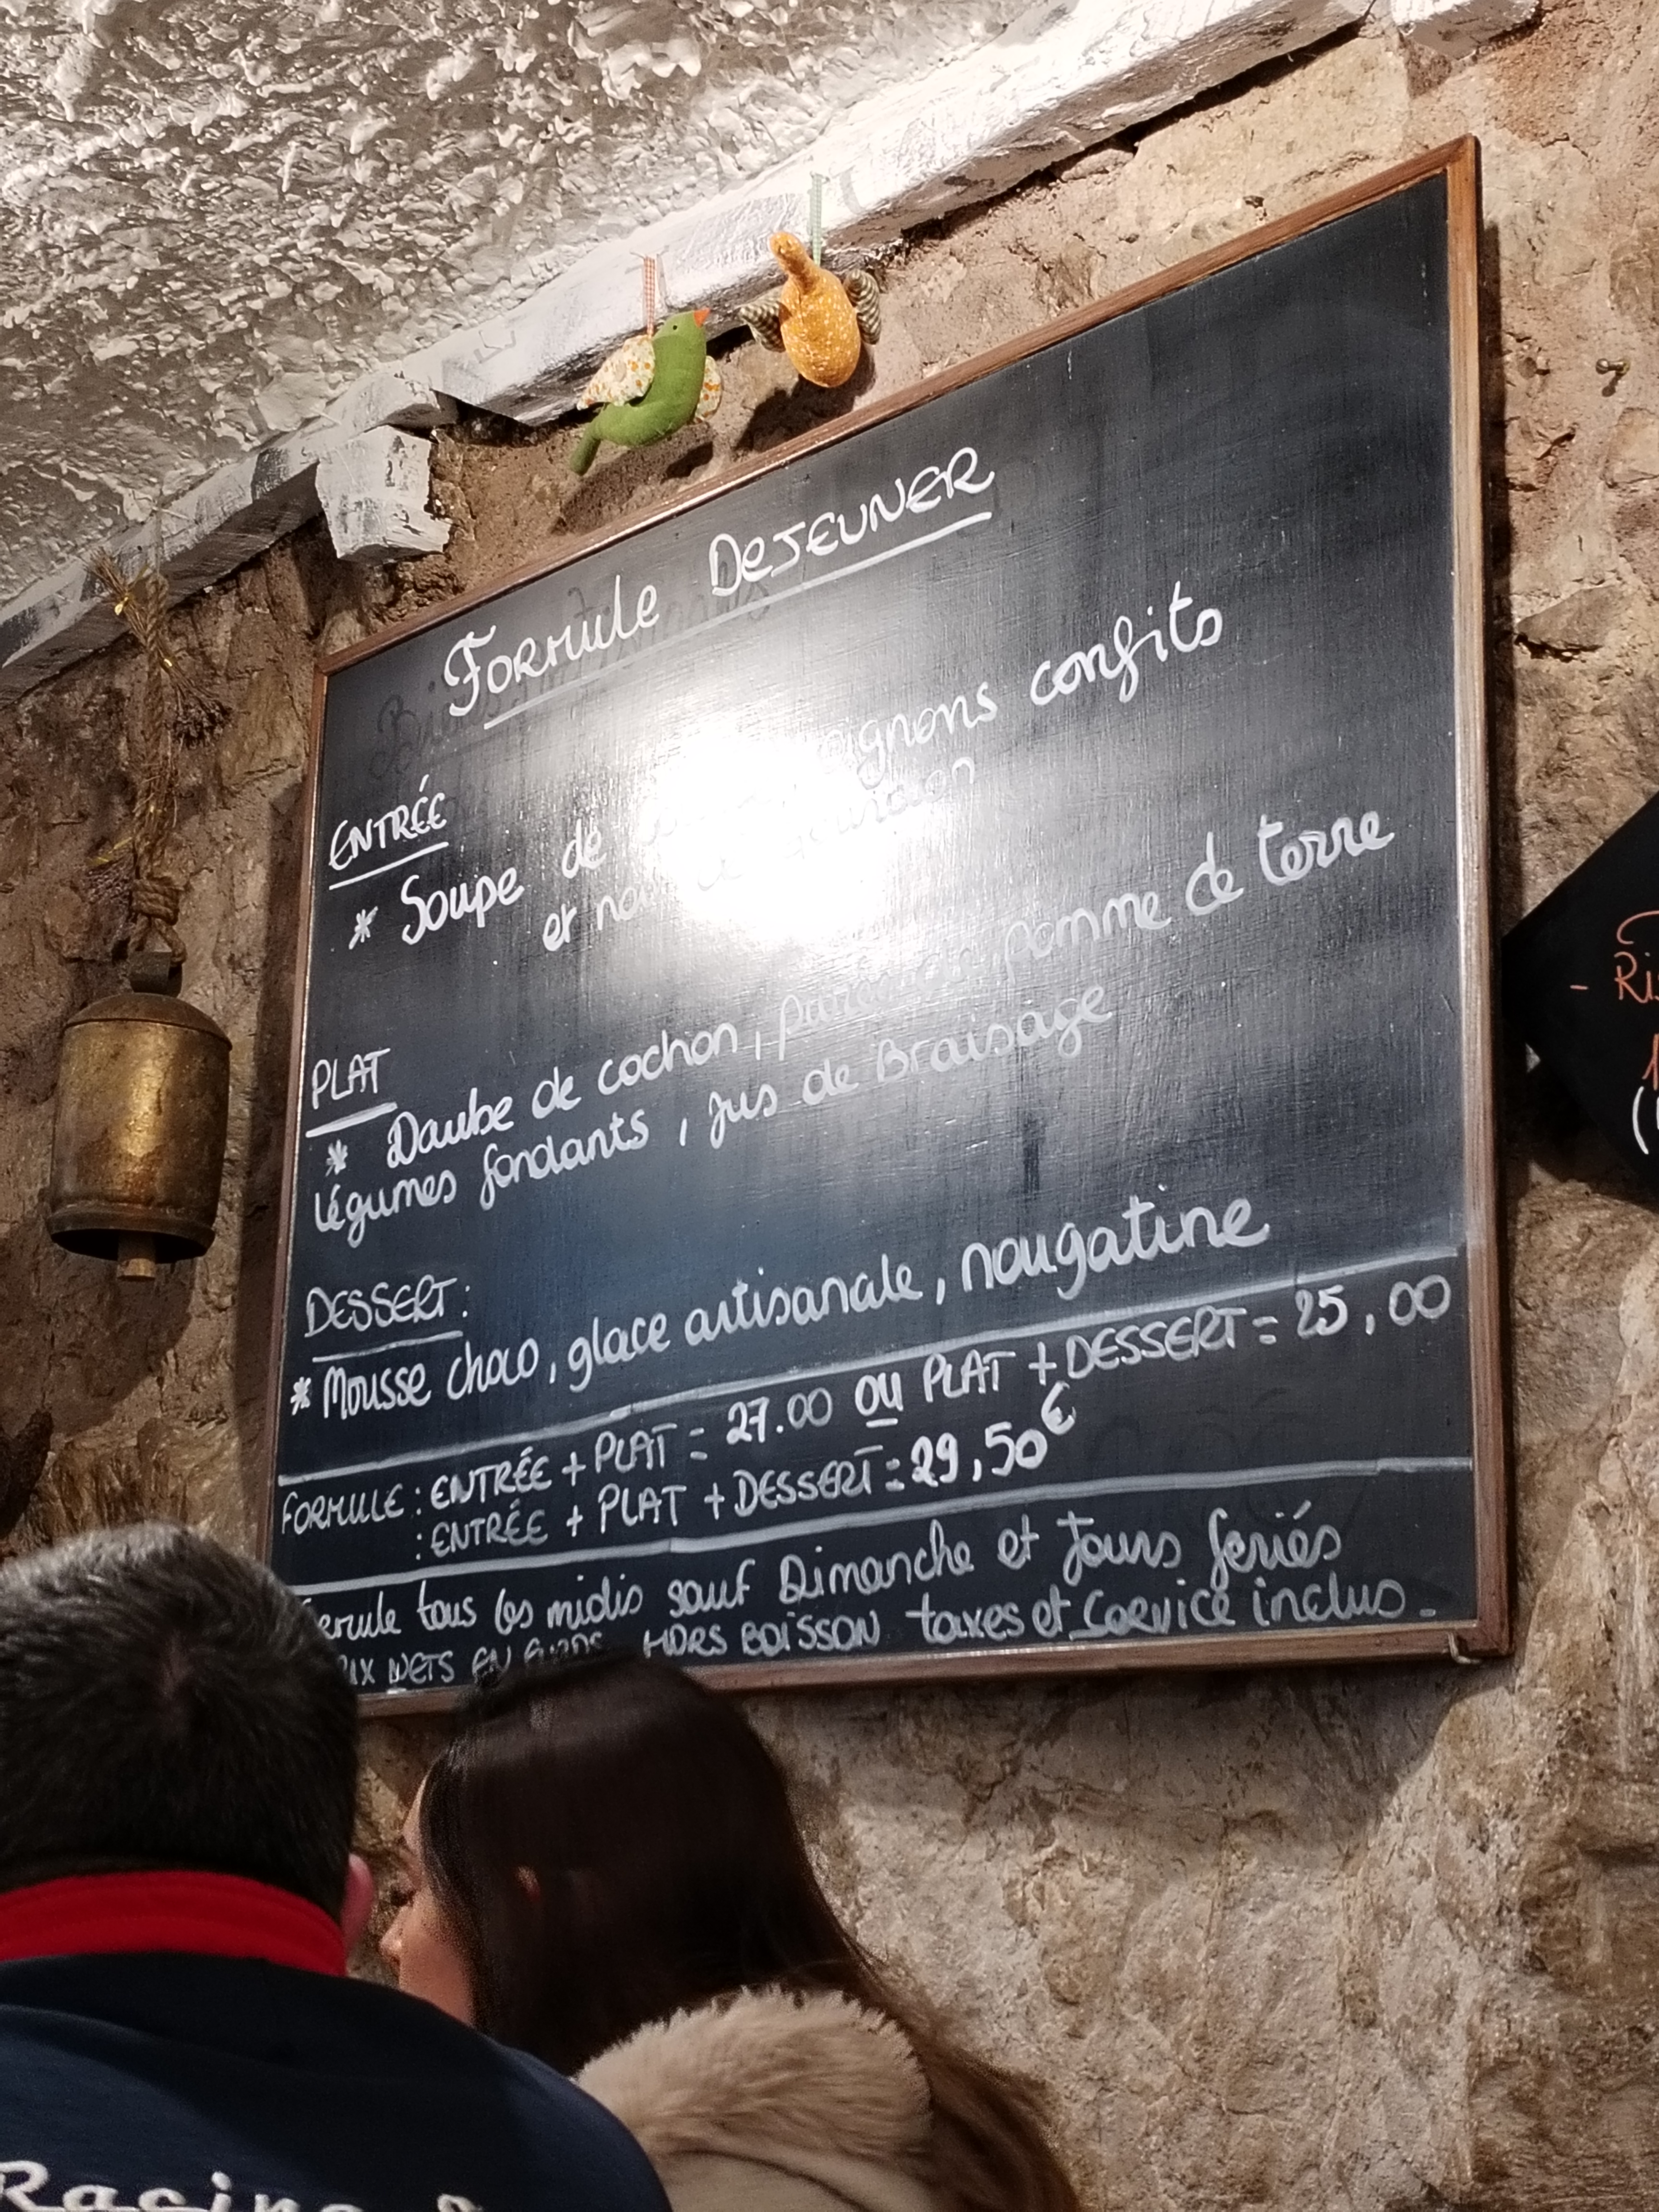 FORMULE DEJEUNER
ENTRÉE
* Soupe de oignons confits
et
PLAT
* Daube de cochon, purée en pomme de terre
légumes fondants, jus de Braisage
DESSERT:
* Mousse choco, glace artisanale, nougatine
FORMULE : ENTRÉE + PLAT = 27.00 OU PLAT + DESSERT = 25,00
: ENTRÉE + PLAT + DESSERT = 29,50€
tous les midis sauf Dimanche et Jours feriés
NETS EN HORS BOISSON taxes et Service inclus.
Racing